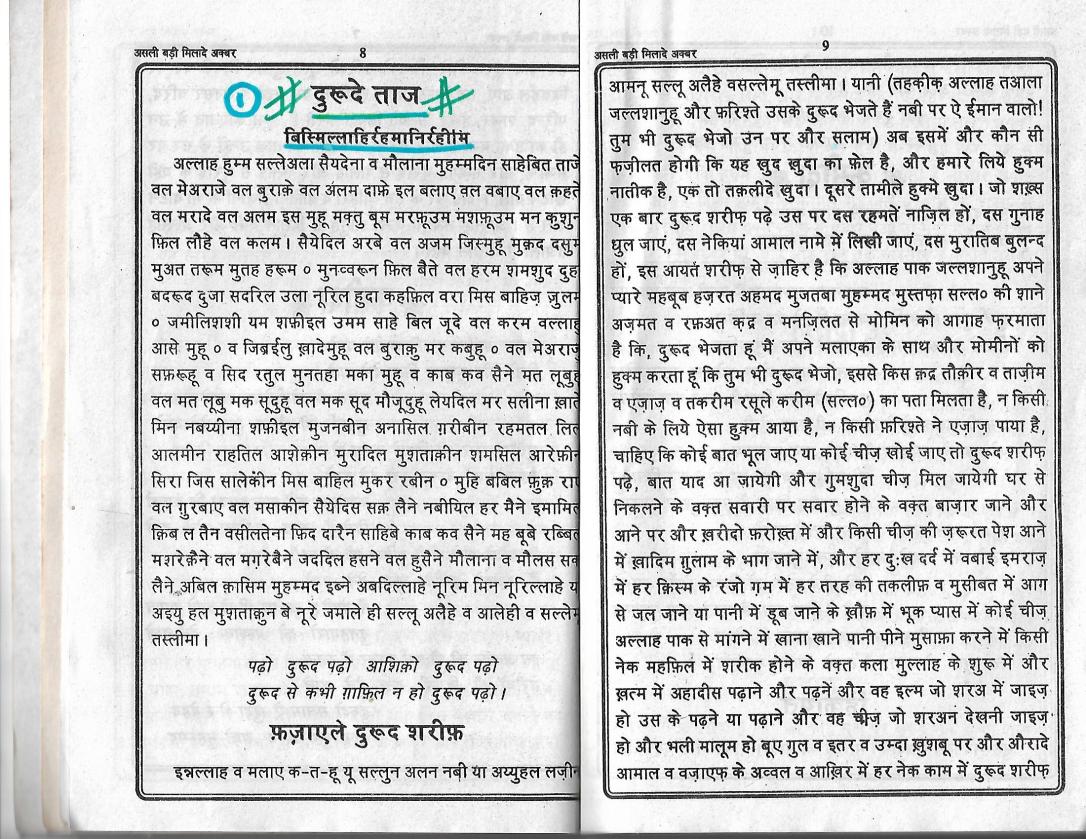 असली बड़ी मिलादे अक्बर
8
① # दुरूदे ताज #
बिस्मिल्लाहिर्रहमानिर्रहीम
अल्लाह हुम्म सल्लेअला सैयदेना व मौलाना मुहम्मदिन साहेबित ताजे
वल मेअराजे वल बुराक़े वल अलम दाफ़े इल बलाए वल वबाए वल क़हते
वल मरादे वल अलम इस मुहू मक्तु बूम मरफ़ूउम मंशफ़ूउम मन कुशुन
फ़िल लौहे वल कलम। सैयेदिल अरबे वल अजम जिस्मुहू मुक़द दसुम
मुअत तरूम मुतह हरूम ० मुनव्वरून फ़िल बैते वल हरम शमशुद दुह
बदरूद दुजा सदरिल उला नूरिल हुदा कहफ़िल वरा मिस बाहिज़ ज़ुलम
० जमीलिशशी यम शफ़ीइल उमम साहे बिल जूदे वल करम वल्लाहु
आसे मुहू ० व जिब्रईलु ख़ादेमुहू वल बुराकु मर कबुहू ० वल मेअराज
सफ़रूहू व सिद रतुल मुनतहा मका मुहू व काब कव सैने मत लूबुहू
वल मत लूबु मक सूदुहू वल मक सूद मौजूदुहू लेयदिल मर सलीना ख़ाते
मिन नबय्यीना शफ़ीइल मुजनबीन अनासिल ग़रीबीन रहमतल लिल
आलमीन राहतिल आशेक़ीन मुरादिल मुशताक़ीन शमसिल आरेफ़ीन
सिरा जिस सालेकीन मिस बाहिल मुकर रबीन ० मुहि बबिल फ़ुक़ राए
वल ग़ुरबाए वल मसाकीन सैयेदिस सक़ लैने नबीयिल हर मैने इमामिल
क़िब ल तैन वसीलतेना फ़िद दारैन साहिबे काब कव सैने मह बूबे रब्बिल
मशरेक़ैने वल मग़रेबैने जददिल हसने वल हुसैने मौलाना व मौलस सक
लैने अबिल क़ासिम मुहम्मद इब्ने अबदिल्लाहे नूरिम मिन नूरिल्लाहे य
अइयु हल मुशताक़ुन बे नूरे जमाले ही सल्लू अलैहे व आलेही व सल्लेम
तस्लीमा।
पढ़ो दुरूद पढ़ो आशिक़ो दुरूद पढ़ो
दुरूद से कभी ग़ाफ़िल न हो दुरूद पढ़ो।
फ़ज़ाएले दुरूद शरीफ़
इन्नल्लाह व मलाए क-त-हू यू सल्लुन अलन नबी या अय्युहल लज़ीन
असली बड़ी मिलादे अक्बर
9
आमनू सल्लू अलैहे वसल्लेमू तस्लीमा। यानी (तहक़ीक़ अल्लाह तआला
जल्लशानुहू और फ़रिश्ते उसके दुरूद भेजते हैं नबी पर ऐ ईमान वालो!
तुम भी दुरूद भेजो उन पर और सलाम) अब इसमें और कौन सी
फ़ज़ीलत होगी कि यह खुद खुदा का फ़ेल है, और हमारे लिये हुक्म
नातीक़ है, एक तो तक़लीदे खुदा। दूसरे तामीले हुक्मे खुदा। जो शख़्स
एक बार दुरूद शरीफ़ पढ़े उस पर दस रहमतें नाज़िल हों, दस गुनाह
धुल जाएं, दस नेकियां आमाल नामे में लिखी जाएं, दस मुरातिब बुलन्द
हों, इस आयत शरीफ़ से ज़ाहिर है कि अल्लाह पाक जल्लशानुहू अपने
प्यारे महबूब हज़रत अहमद मुजतबा मुहम्मद मुस्तफ़ा सल्ल० की शाने
अज़मत व रफ़अत क़द्र व मनज़िलत से मोमिन को आगाह फ़रमाता
है कि, दुरूद भेजता हूं मैं अपने मलाएका के साथ और मोमीनों को
हुक्म करता हूं कि तुम भी दुरूद भेजो, इससे किस क़द्र तौक़ीर व ताज़ीम
व एज़ाज़ व तकरीम रसूले करीम (सल्ल०) का पता मिलता है, न किसी
नबी के लिये ऐसा हुक्म आया है, न किसी फ़रिश्ते ने एज़ाज़ पाया है,
चाहिए कि कोई बात भूल जाए या कोई चीज़ खोई जाए तो दुरूद शरीफ़
पढ़े, बात याद आ जायेगी और गुमशुदा चीज़ मिल जायेगी घर से
निकलने के वक़्त सवारी पर सवार होने के वक़्त बाज़ार जाने और
आने पर और ख़रीदो फ़रोख़्त में और किसी चीज़ की ज़रूरत पेश आने
में ख़ादिम ग़ुलाम के भाग जाने में, और हर दुःख दर्द में वबाई इमराज़
में हर क़िस्म के रंजो ग़म में हर तरह की तकलीफ़ व मुसीबत में आग
से जल जाने या पानी में डूब जाने के ख़ौफ़ में भूक प्यास में कोई चीज़
अल्लाह पाक से मांगने में खाना खाने पानी पीने मुसाफ़ा करने में किसी
नेक महफ़िल में शरीक होने के वक़्त कला मुल्लाह के शुरू में और
ख़त्म में अहादीस पढ़ाने और पढ़नें और वह इल्म जो शरअ में जाइज़
हो उस के पढ़ने या पढ़ाने और वह चीज़ जो शरअन देखनी जाइज़
हो और भली मालूम हो बूए गुल व इतर व उम्दा ख़ुशबू पर और औरादे
आमाल व वज़ाएफ़ के अव्वल व आख़िर में हर नेक काम में दुरूद शरीफ़